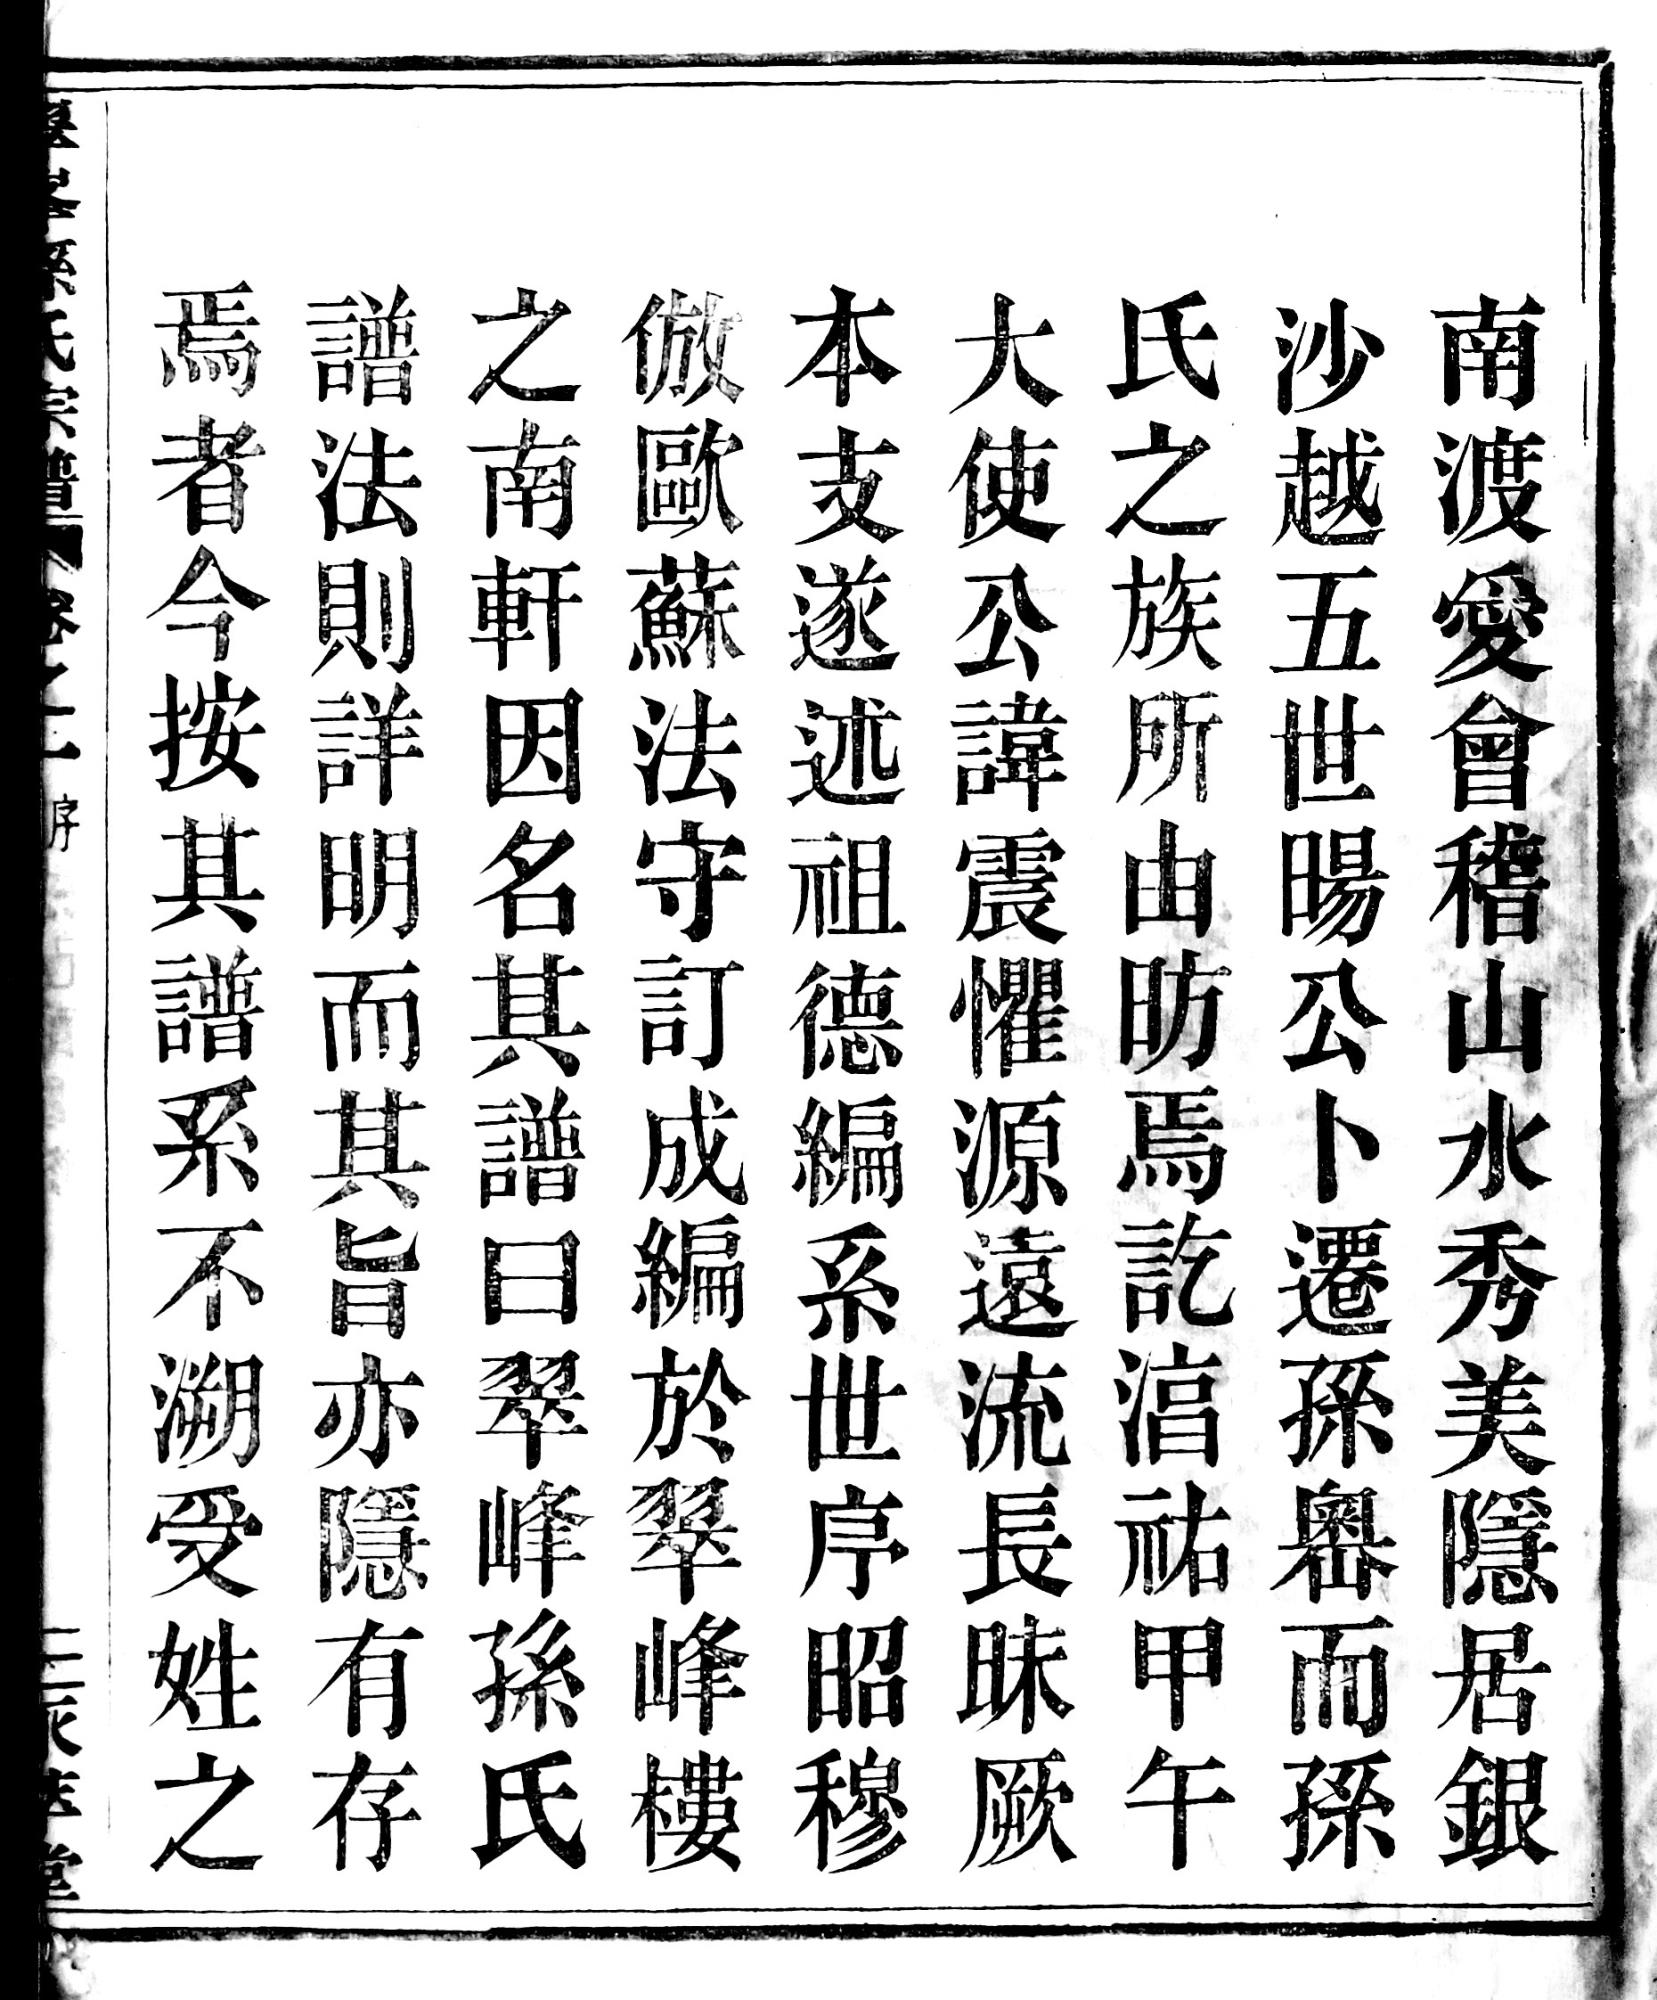 南渡愛會稽山水秀美隱居銀
沙越五世暘公卜遷孫嶴而孫
氏之族所由昉焉訖湻祐甲午
大使公諱震懼源遠流長昧厥
本支遂述祖德編系世序昭穆
倣歐蘇法守訂成編於翠峰樓
之南軒因名其譜曰翠峰孫氏
譜法則詳明而其旨亦隱有存
焉者今按其譜系不溯受姓之
孫氏宗譜 卷之一 序